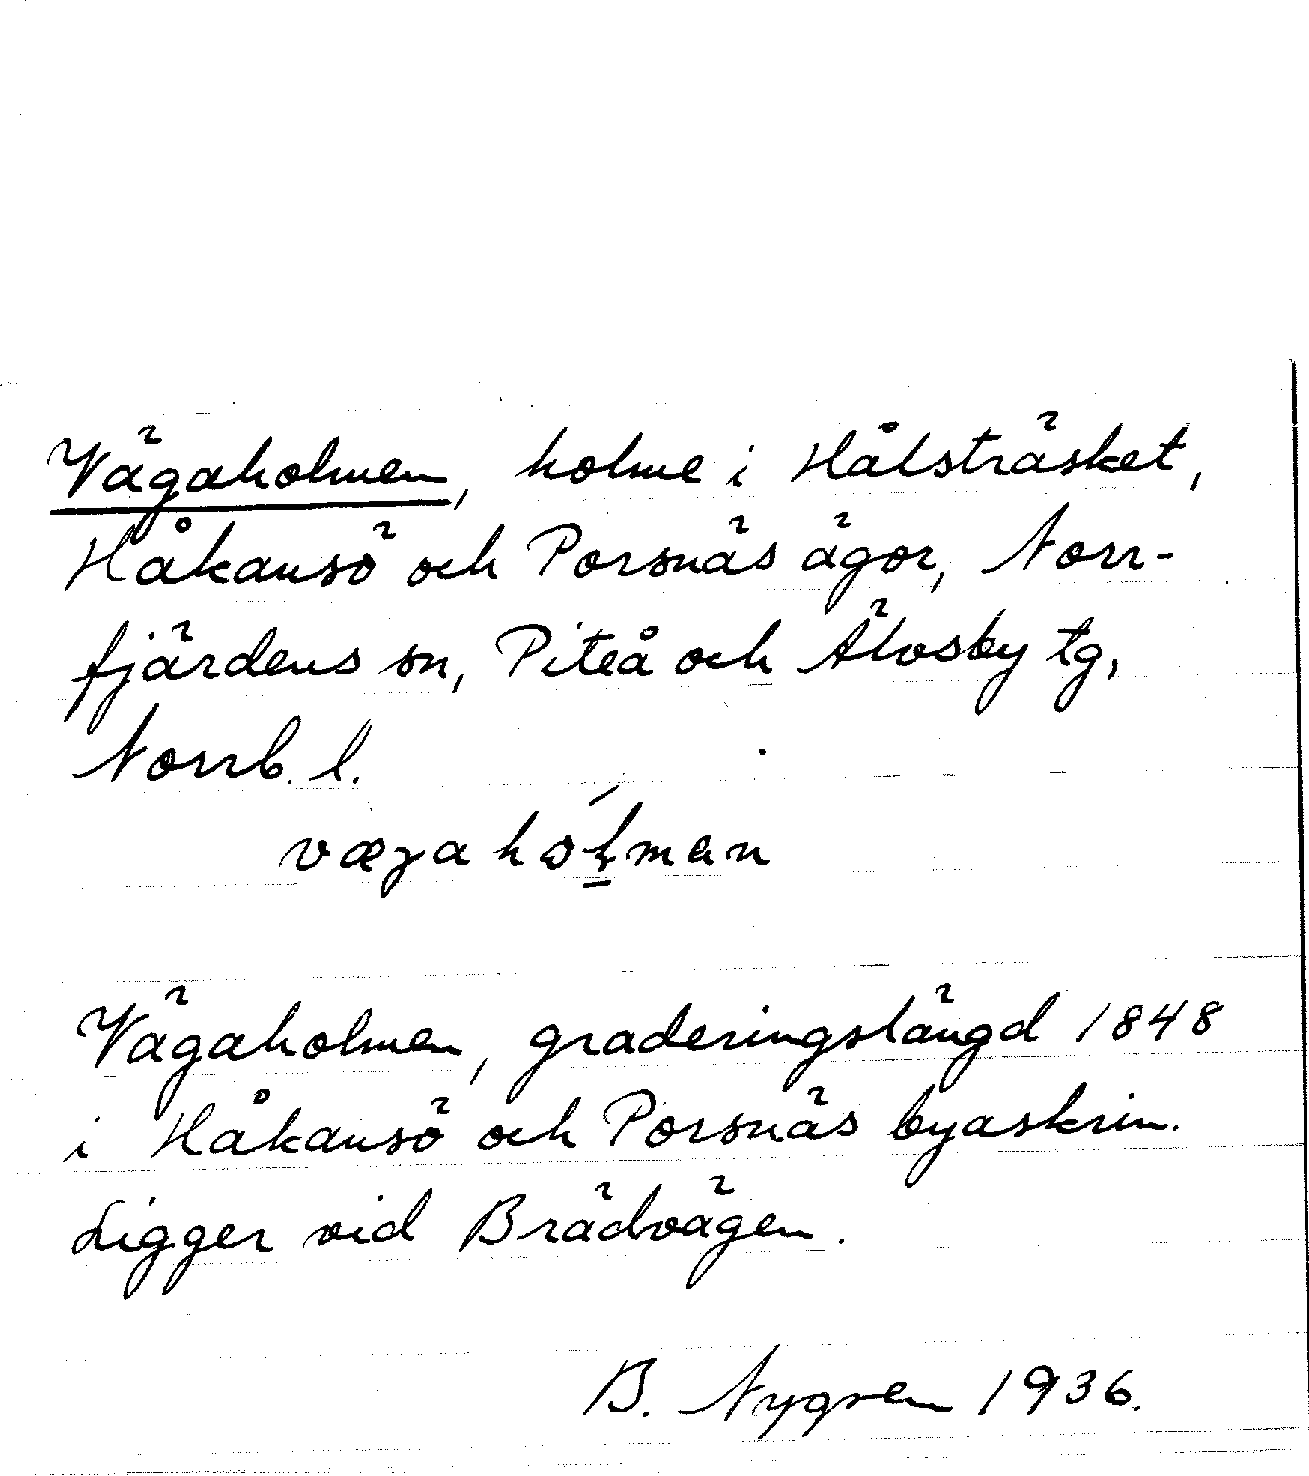 Vägaholmen, holme i Hålsträsket,
Håkansö och Porsnäs ägor, Norr-
fjärdens sn, Piteå och Älvsby tg,
Norrb. l.
væɣahoɫ́man
Vägaholmen, graderingslängd 1848
i Håkansö och Porsnäs byaskrin.
Ligger vid Brädvägen.
B. Nygren 1936.